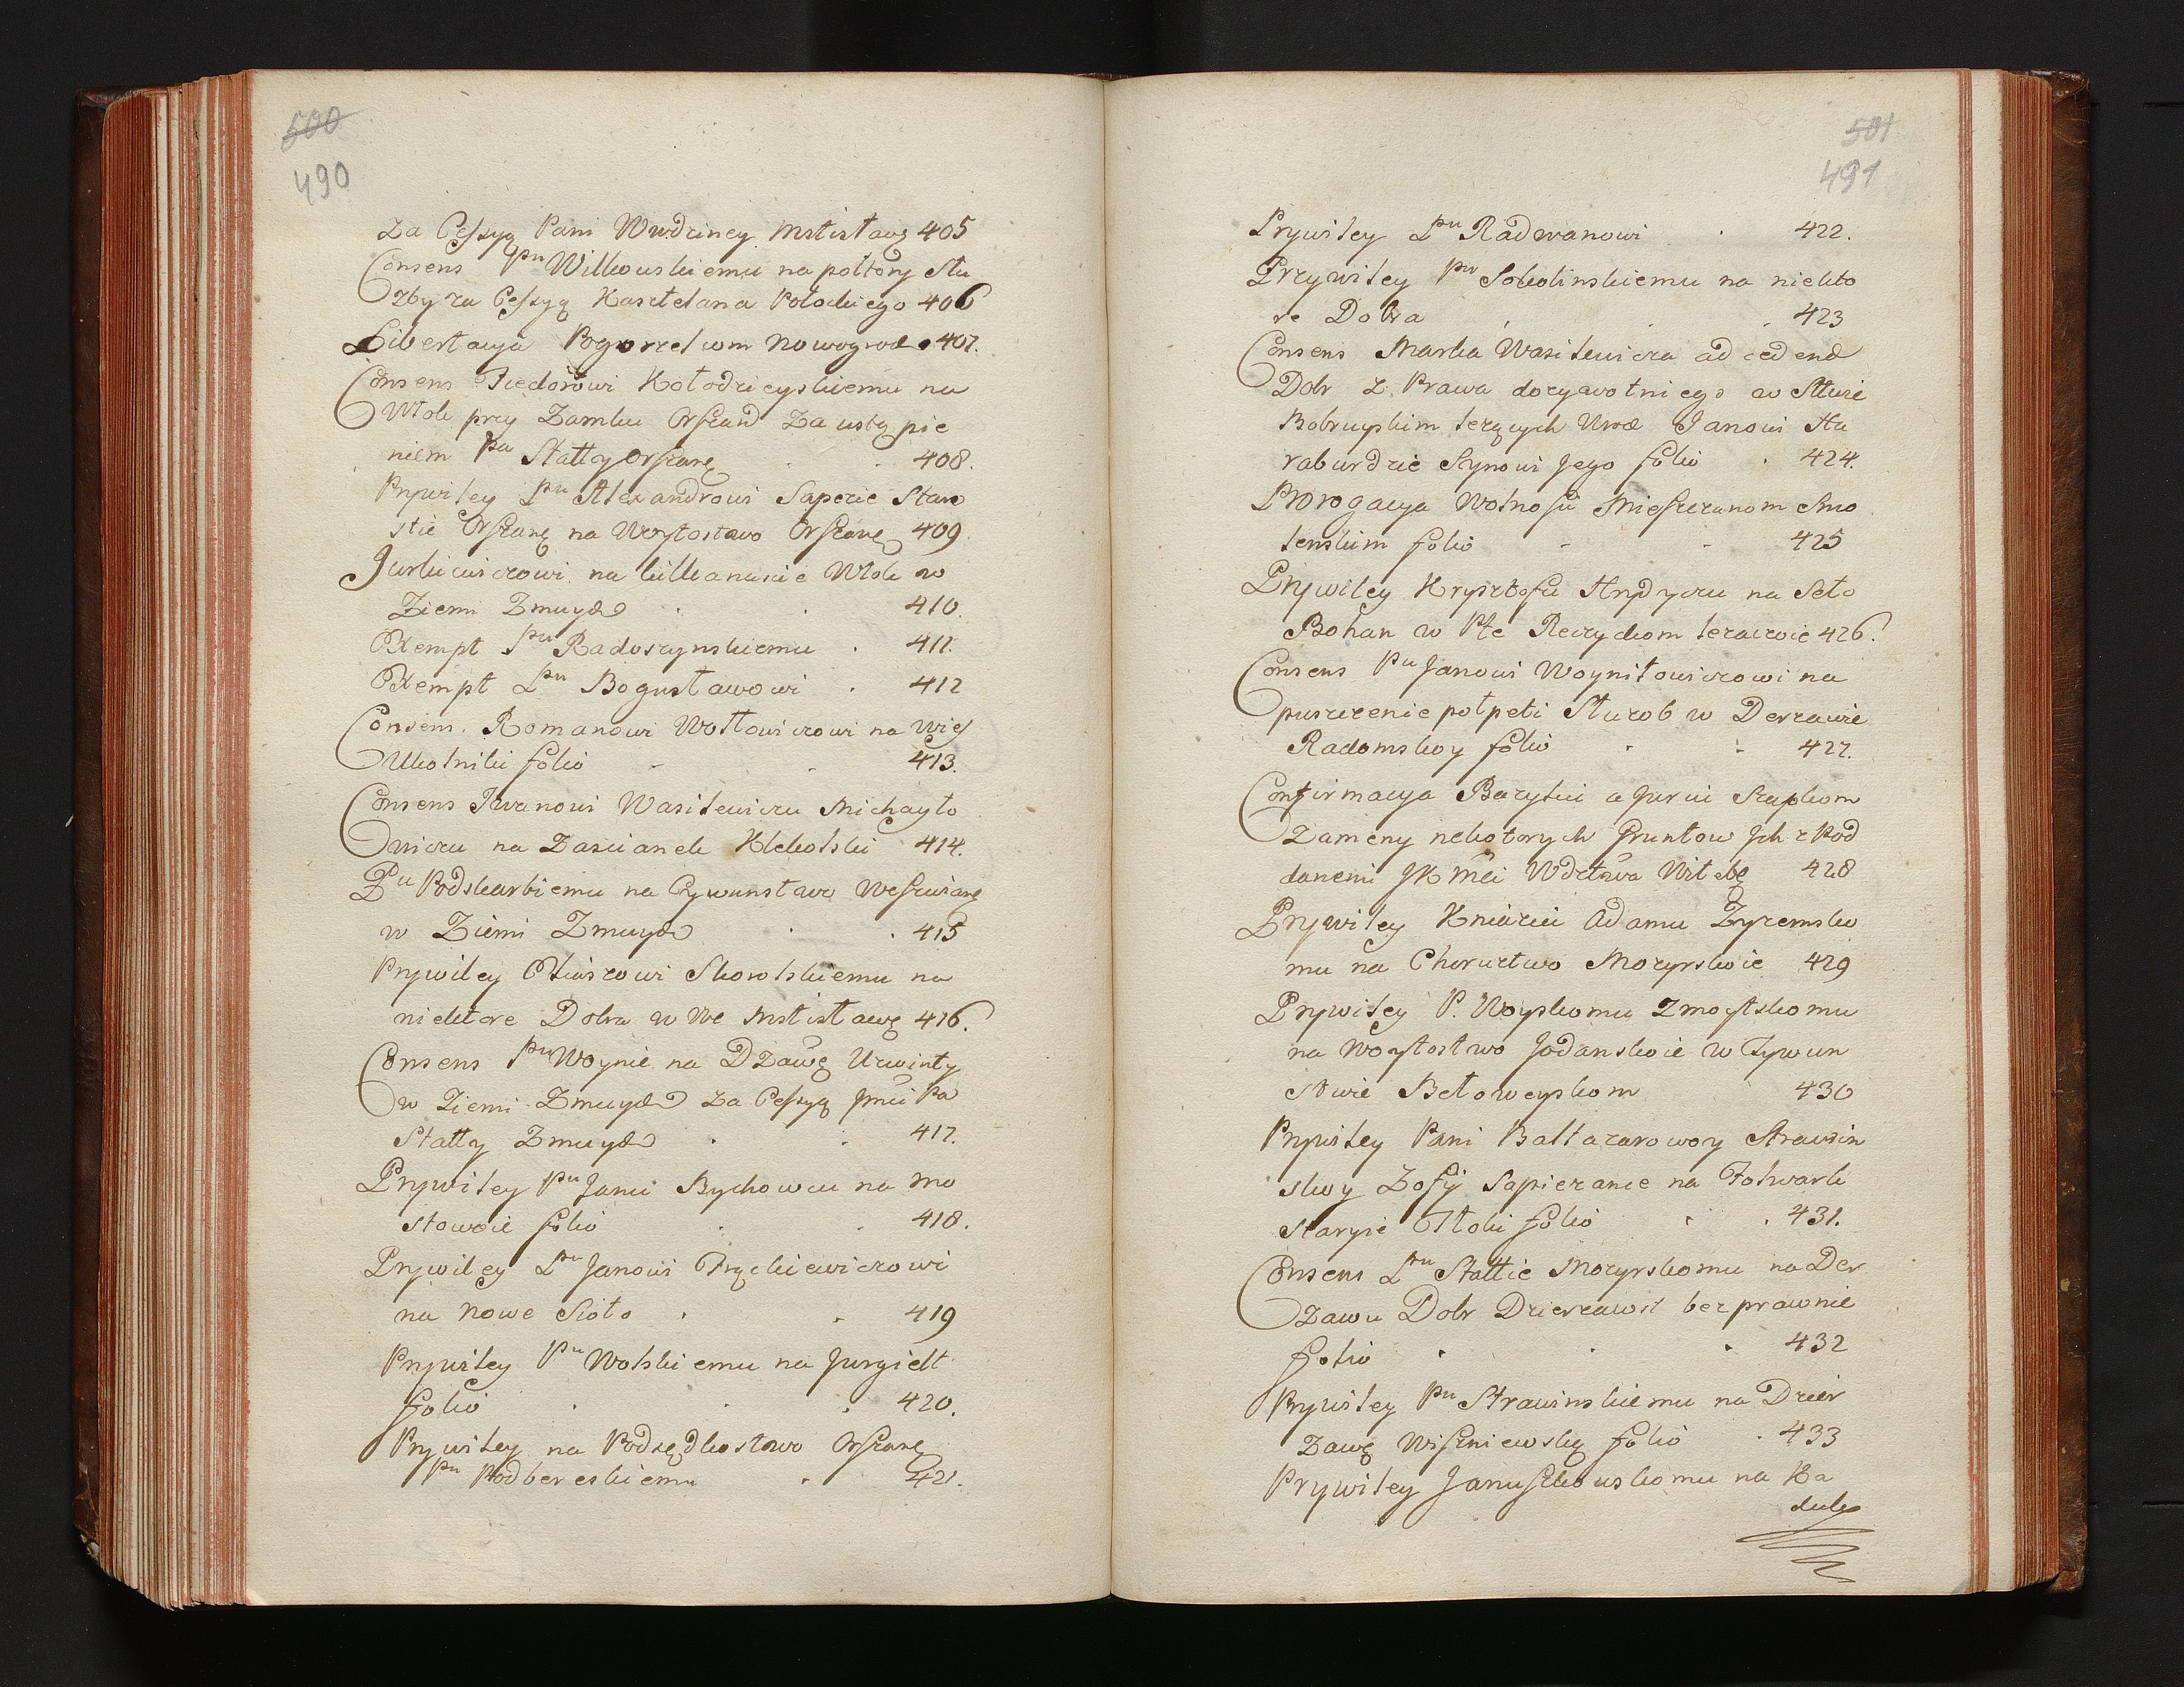 500
490
Za Cessyą Pani Wwdziney Mstisławs 405
Consens Pnu Wilkowskiemu na połtory Słu
zby za Cessyą Kasztelana Połockiego 406
Libertacya Pogorzelcom Nowogrod 407.
Consens Fiedorowi Kołodzieyskiemu na
Włok przy Zamku Orszan Za ustąpie
niem Pa Statty Orszansg 408.
Prywiley Pnu Alexandrowi Sapezie Staro
stie Orszang na Woytostwo Orszang 409
Jurkiewiczowi na kilkanascie Włok w
Ziemi Zmuyd 410.
Exempt Pnu Radoszynskiemu 411.
Exempt Pnu Bogusławowi 412
Consens Romanowi Wołłowiczowi na Wieś
Ukolniki folio 413.
Consens Iwanowi Wasilewiczu Michayło
wiczu na Zascianek Klekotski 414.
Pnu Podskarbiemu na Cywunstwo Weszwiang
w Ziemi Zmuyd 415
Prywiley Eliaszowi Skowlskiemu na
niektore Dobra w Wwe Mstisławg 416.
Consens Pnu Woynie na Dzawę Urwinty
w Ziemi Zmuyd za Cessyą Jmci Pa
Statty Zmuyd 417.
Prywiley Pnu Janu Bychowcu na Mo
stowoie folio 418.
Prywiley Pnu Janowi Frąckiewiczowi
na Nowe Sioło 419
Prywiley Pu Wolskiemu na Jurgielt
folio 420.
Prywiley na Podsędkostwo Orszang
Pu Podbereskiemu 421.
501
491
Prywiley Pnu Radwanowi 422.
Przywiley Pnu Sokolinskiemu na niekto
re Dobra 423
Consens Marka Wasilewicza ad cedend
Dobr z Prawa dozywotniego w Sttwie
Bobruyskim lezących Urod Janowi Ha
raburdzie Synowi Jego folio 424.
Prorogacya Wolnosci Mieszczanom Smo
lenskim folio 425
Prywiley Krysztofu Hrydyczu na Seło
Bohan w Pte Reczyckom lezaczoie 426.
Consens Pu Janowi Woyniłowiczowi na
puszczenie połpeti Służob w Derzawie
Radomskoy folio 427.
Confirmacya Barytki a Jurui Szupkom
Zameny nekotorych Gruntow Jch z Pod
danemi JKMci Wdztwa Witebg 428
Prywiley Kniaziu Adamu Zyzemsko
mu na Choruztwo Mozyrskoie 429
Prywiley P. Woyskomu Zmoytskomu
na Woytostwo Jodanskoie w Tywun
stwie Betowoyskom 430
Prywiley Pani Baltazarowoy Strawin
skoy Zofij Sapiezance na Folwark
Staryie Tloki folio 431.
Consens Pnu Stattie Mozyrskomu na Der
Zawu Dobr Dzierzawst bezprawnie
folio 432
Prywiley Pnu Strawinskiemu na Dzier
Zawę Wiszniewską folio 433
Prywiley Januszkowskomu na Ka
duk